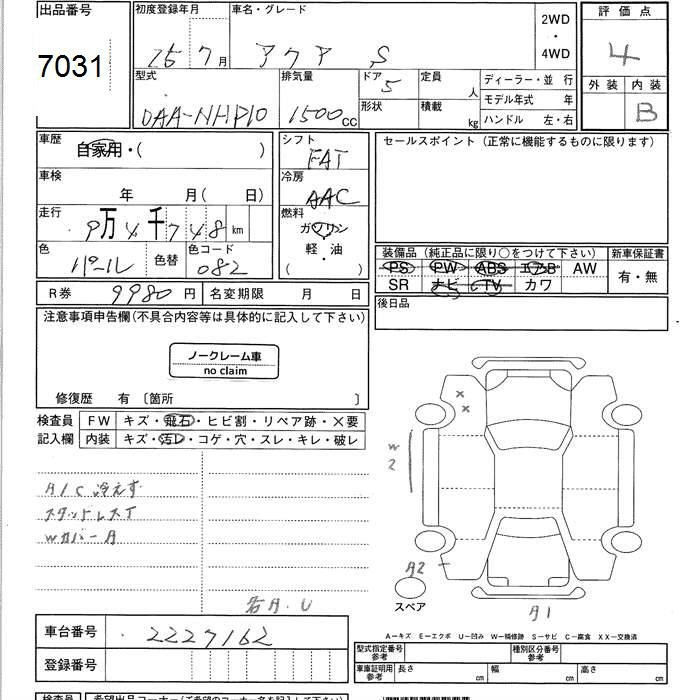 出品番号
7031
初度登録年月
25 7月
車名・グレード
アクア S
2WD
・
4WD
評価点
4
外装 内装
B
型式
DAA-NHP10
排気量
1500cc
ドア 5
形状
定員 人
積載 kg
ディーラー・並行
モデル年式 年
ハンドル 左・右
車歴
自家用・( )
車検
年 月( 日)
走行
9万4千748km
色
パール
色替
色コード
082
シフト
FAT
冷房
AAC
燃料
ガソリン
・
軽・油
( )
セールスポイント (正常に機能するものに限ります)
装備品 (純正品に限り○をつけて下さい) 新車保証書
PS PW ABS エアB AW
SR ナビ TV カワ
有・無
R券 9980円 名変期限 月 日
後日品
注意事項申告欄(不具合内容等は具体的に記入して下さい)
ノークレーム車
no claim
修復歴 有〔箇所 〕
検査員
記入欄
FW キズ・飛石・ヒビ割・リペア跡・×要
内装 キズ・汚レ・コゲ・穴・スレ・キレ・破レ
A/C冷えず
スタッドレスT
Wカバー A
各A.U
x
x
W
2
A2
A1
スペア
A－キズ E－エクボ U－凹み W－補修跡 S－サビ C－腐食 XX－交換済
車台番号 2227162
登録番号
型式指定番号
参考
種別区分番号
参考
車庫証明用
参考
長さ cm 幅 cm 高さ cm
検査員
希望出品コーナー(ご希望のコーナー名を記入して下さい)